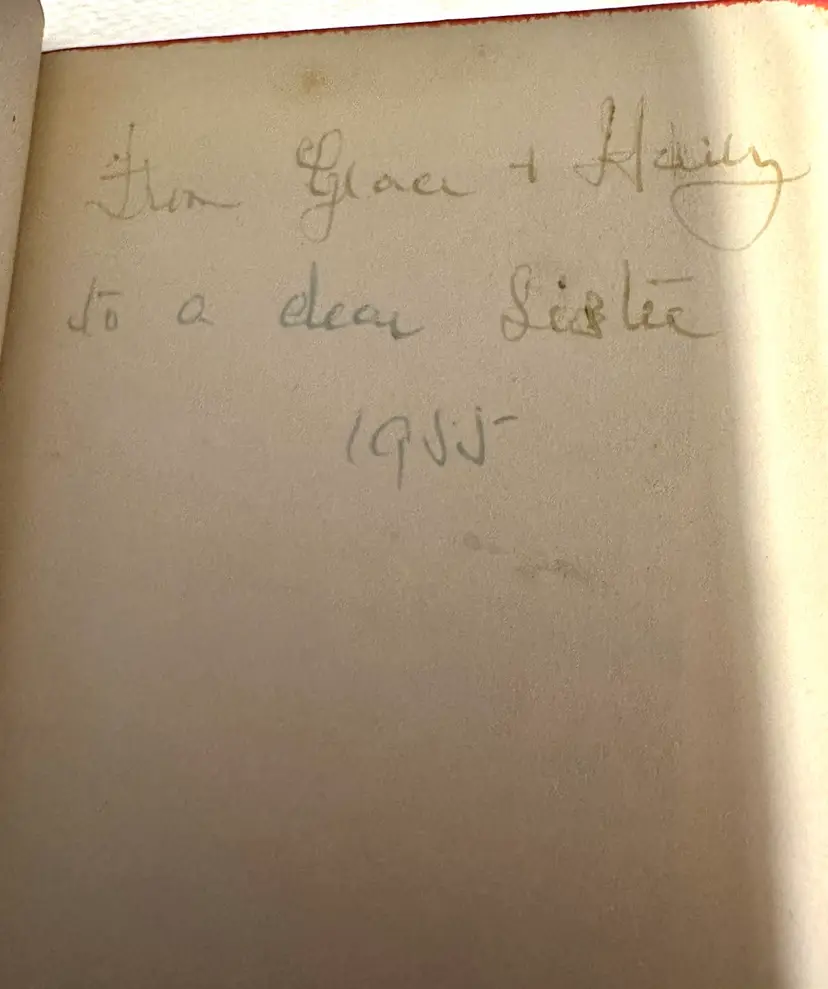 From Grace + Harry
to a dear Sister
1955